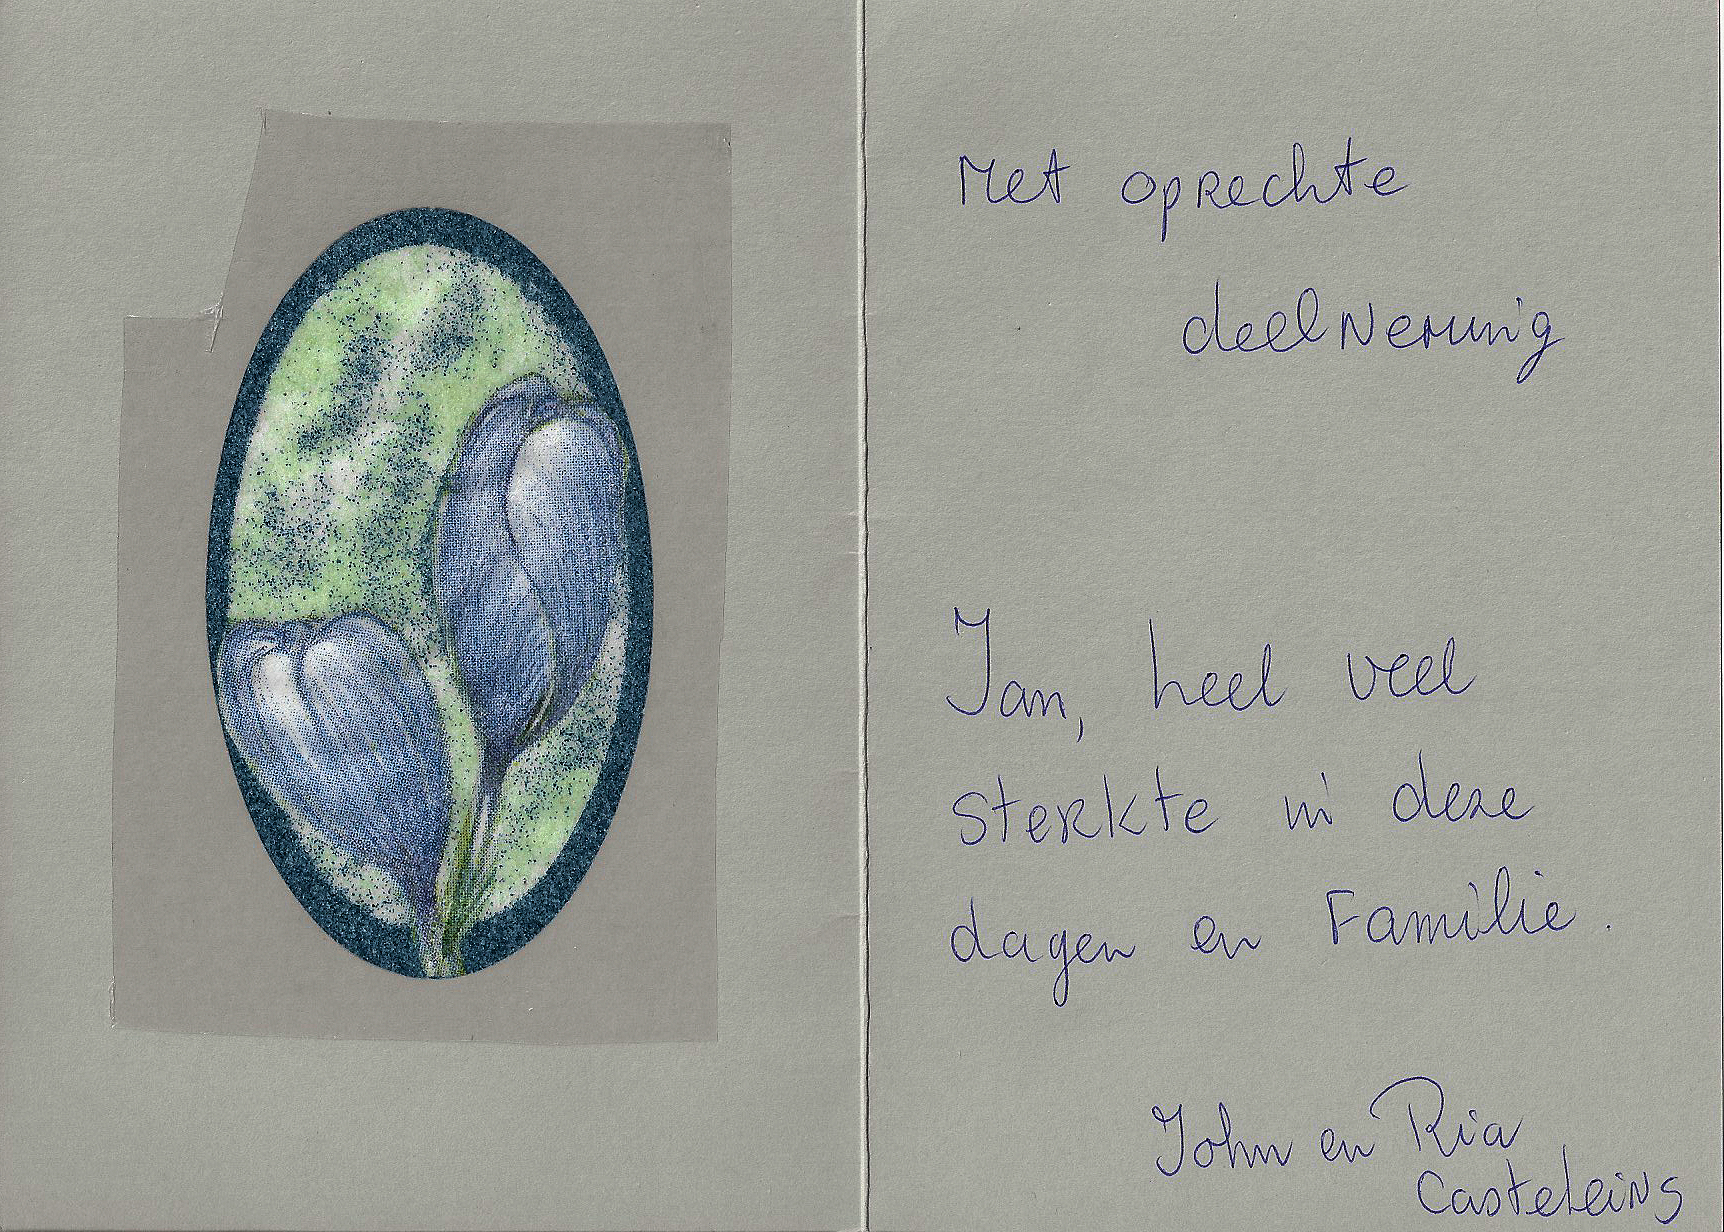 Met oprechte
deelneming
Jan, heel veel
sterkte in deze
dagen en Familie.
John en Ria
Casteleins